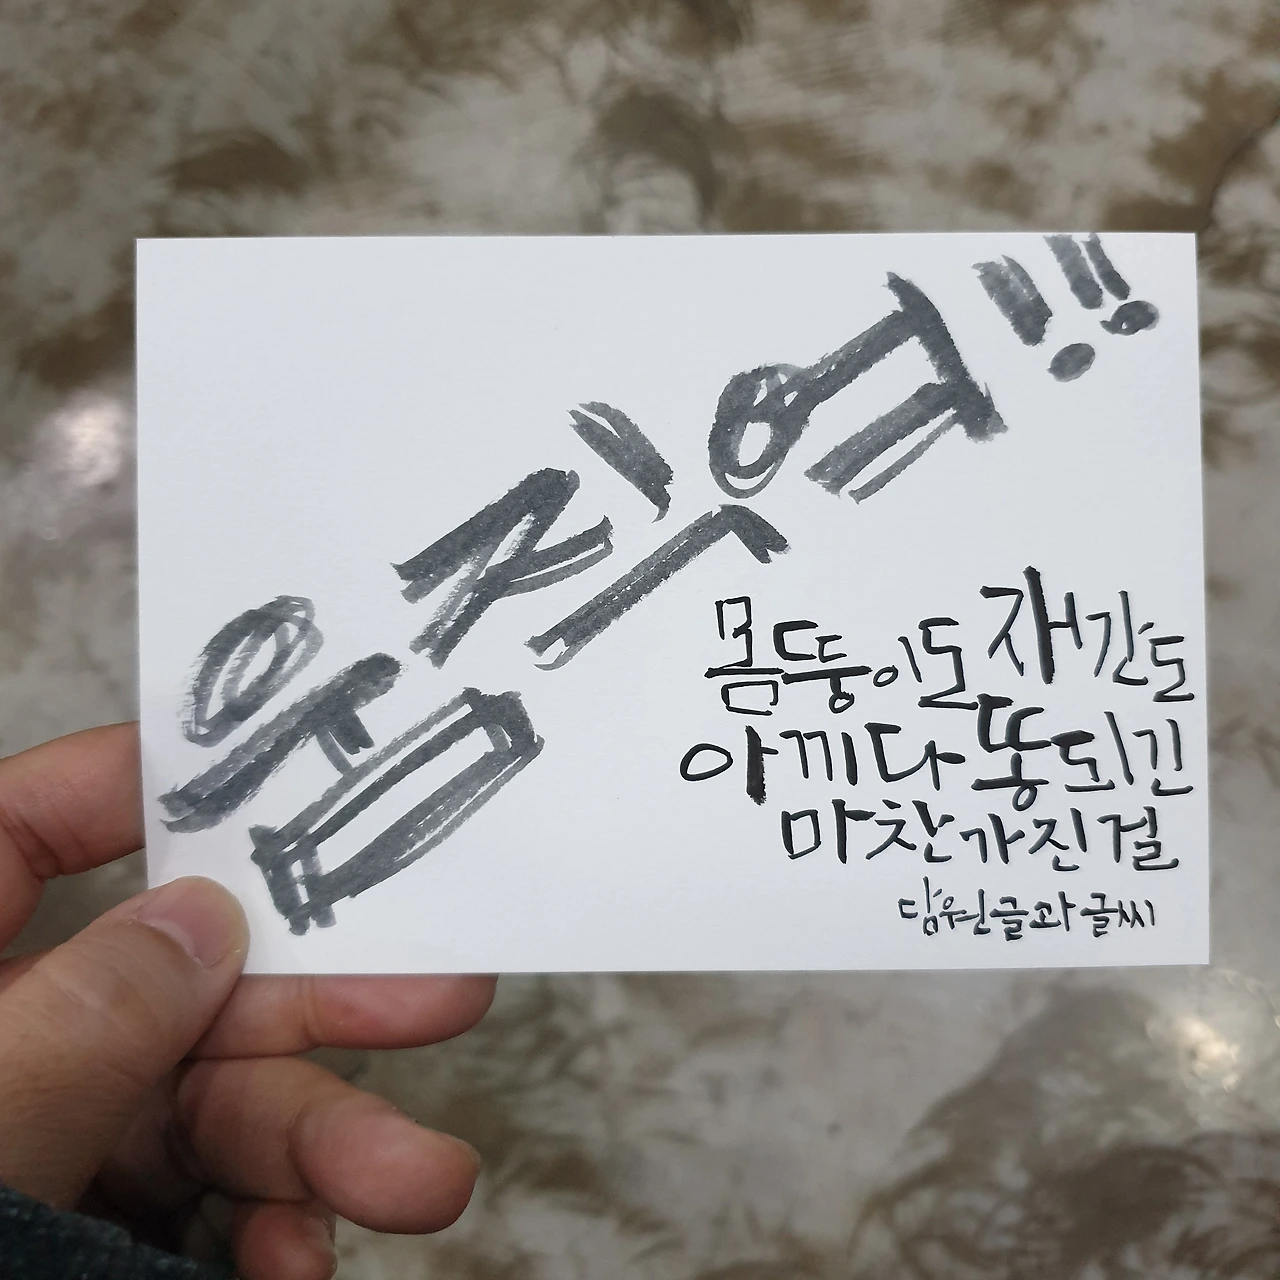 움직여!!
몸뚱이도 재간도
아끼다 똥되긴
마찬가진걸
담원글과글씨